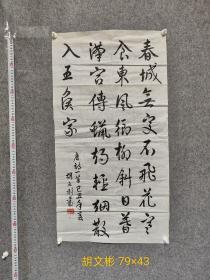 春城無處不飛花寒
食東風御柳斜日暮
漢宮傳蠟燭輕烟散
入五侯家
唐詩一首己丑年夏
胡文彬書
胡文彬 79×43